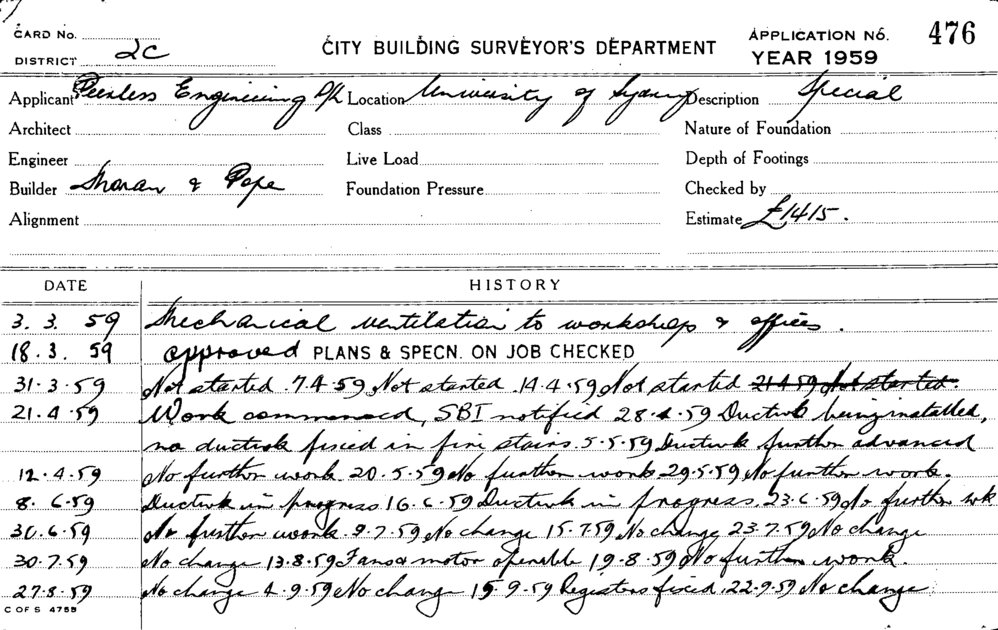 CARD No.
DISTRICT 2C
CITY BUILDING SURVEYOR'S DEPARTMENT
APPLICATION No. 476
YEAR 1959
Applicant Peerless Engineering P/L Location University of Sydney Description Special
Architect Class Nature of Foundation
Engineer Live Load Depth of Footings
Builder & Pope Foundation Pressure Checked by
Alignment Estimate £1,415.
DATE HISTORY
3. 3. 59 Mechanical ventilation to workshop & offices.
18. 3. 59 approved PLANS & SPECN. ON JOB CHECKED
31. 3. 59 Not started. 7.4.59 Not started. 14.4.59 Not started 21.4.59 Not started.
21. 4. 59 Work commenced, SBI notified 28.4.59 Ductwk being installed,
no ductwk fixed in fire stairs. 5.5.59 Ductwk further advanced
12. 4. 59 No further work. 20.5.59 No further work 29.5.59 No further work.
8. 6. 59 Ductwk in progress. 16.6.59 Ductwk in progress. 23.6.59 No further wk
30. 6. 59 No further work. 9.7.59 No change 15.7.59 No change 23.7.59 No change
30. 7. 59 No change 13.8.59 Fans & motor operable 19.8.59 No further work.
27. 8. 59 No change 4.9.59 No change 15.9.59 Registers fixed. 22.9.59 No change
C OF S 4755